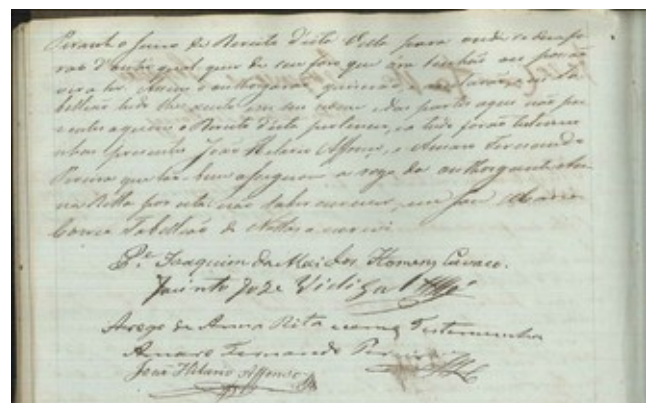 Perante o Juizo de Direito desta Villa para onde se desafo-
rão d'outro qual quer de seu foro que óra tenhão ou possão
vir a ter. Assim o outhorgarão quizerão, e aceitarão, e eu Ta-
bellião tudo lhes aceito em seu nome e das partes a quem não pre-
sentes a quem o Direito desta pertencer, e a tudo forão testemu-
nhas presentes João Hilario Affonso, e Amaro Fernandes
Pereira que tão bem assignou a rogo da outhorgante An-
na Ritta por esta não saber escrever, eu José Maria
Correa Tabellião de Nottas o escrevi.
P.e Joaquim da Mai dos Homens Cavaco.
Jacinto Joze Vidigal
A rogo de Anna Rita e como Testemunha
Amaro Fernandes Per
João Hilario Affonso